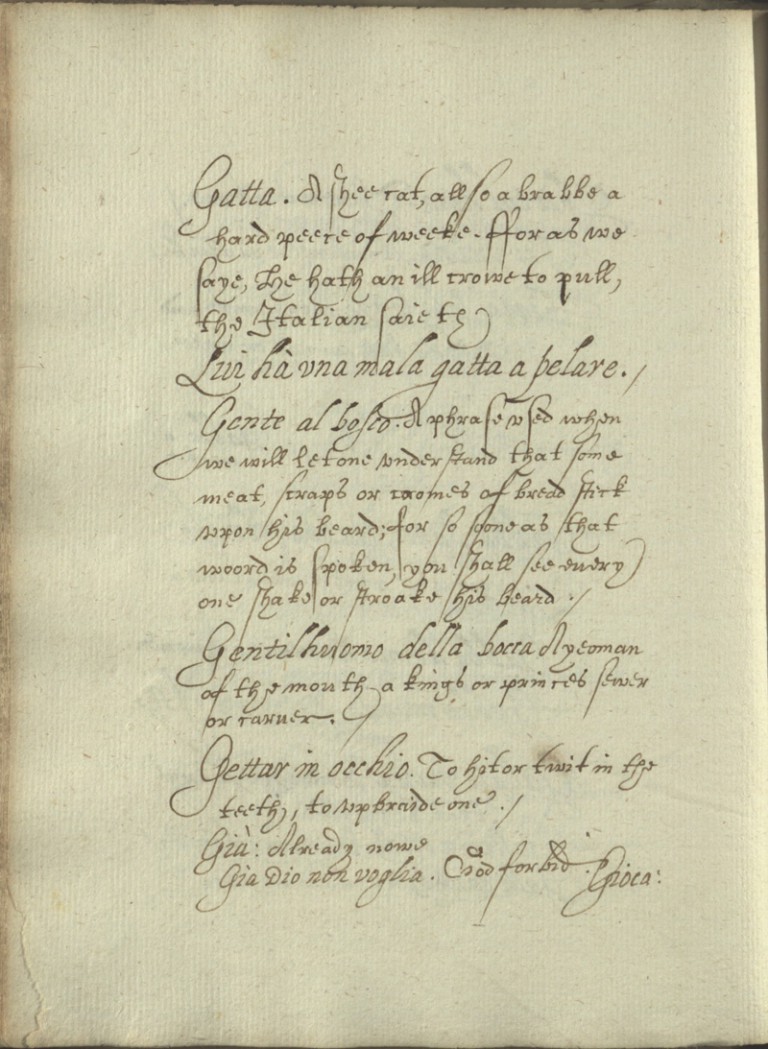 Gatta. A shee cat, allso a brabbe a
hard peece of weeke. ffor as we
saye, He hath an ill crowe to pull,
the Italian saieth
Lui hà vna mala gatta a pelare./
Gente al bosco. A phrase vsed when
we will let one vnderstand that some
meat, scraps or cromes of bread stick
vpon his beard; for so soone as that
woord is spoken, you shall see euery
one shake or stroake his beard ./
Gentilhuomo della bocca A yeoman
of the mouth a kings or princes sewer
or caruer.
Gettar in occhio. To hit or twit in the
teeth, to vpbraide one ./
Già: Already nowe
Gia Dio non voglia. God forbid.
Gioca: